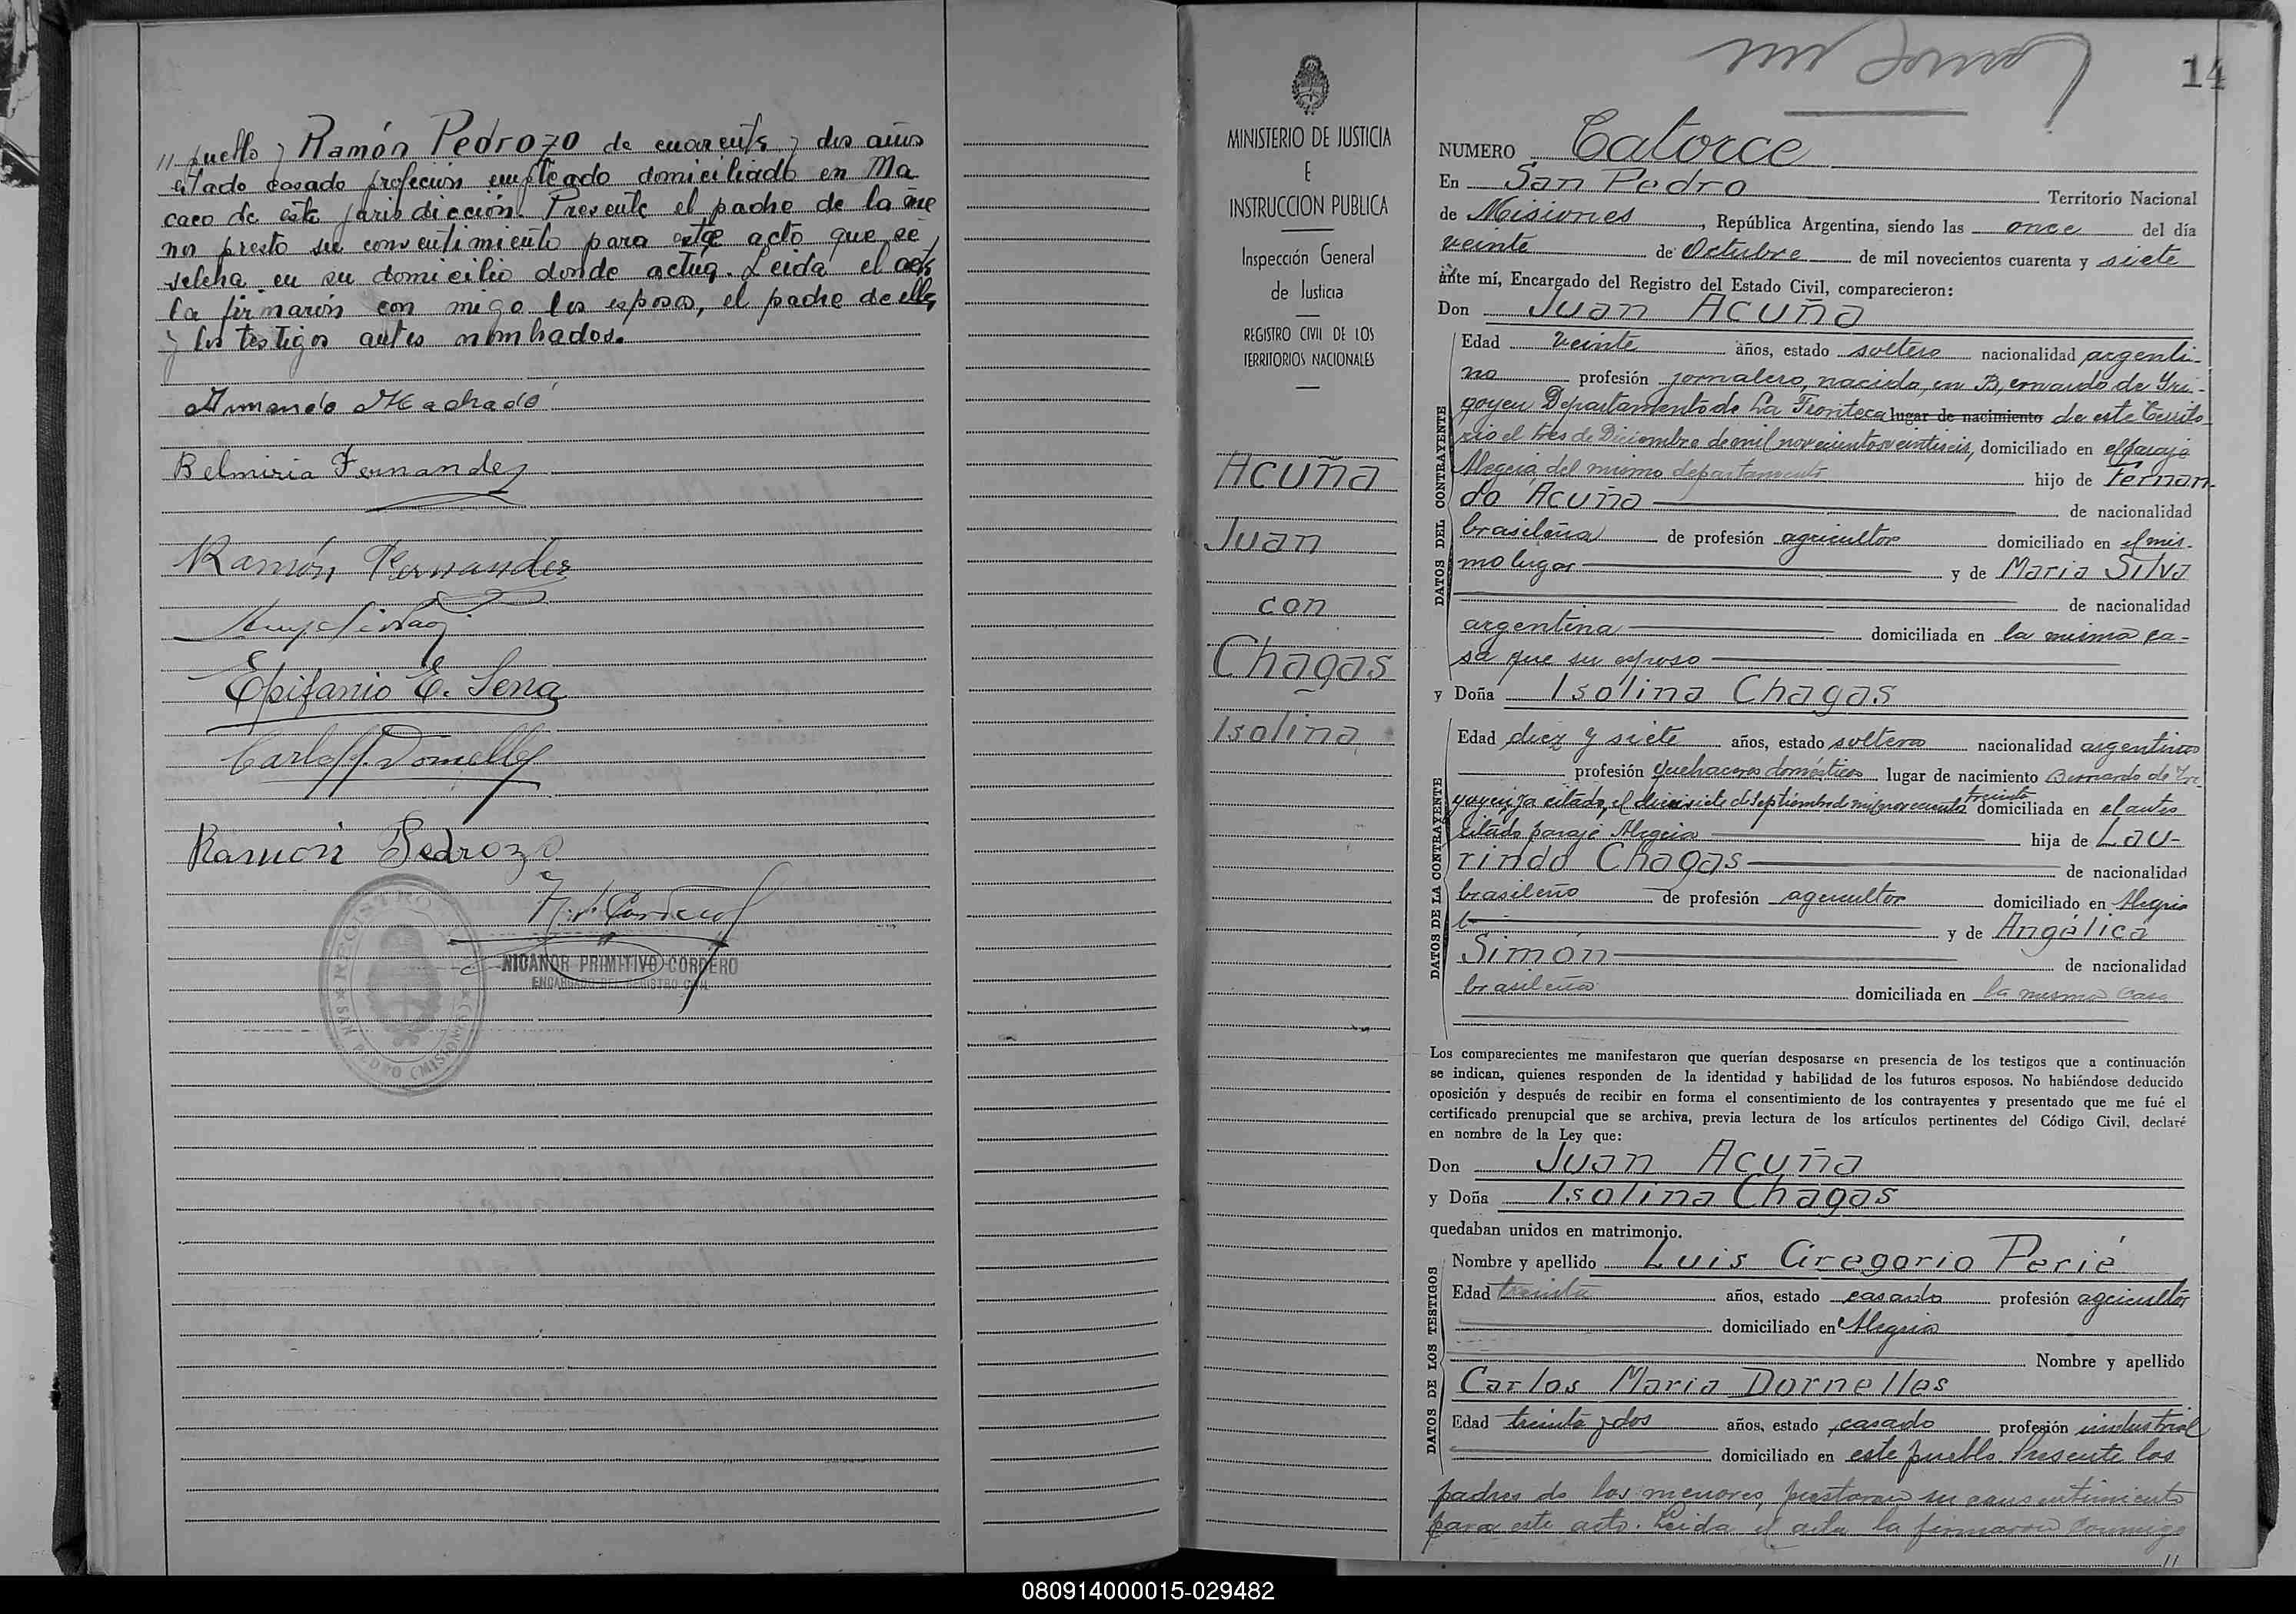 " pueblo y Ramón Pedrozo de cuarenta y dos años
estado casado profeción empleado domiciliado en Ma
caco de esta jurisdicción. Presente el padre de la me
nor presto su consentimiento para este acto que se
selebra en su domicilio donde actúa. Leida el acta
la firmarón con migo los esposos, el padre de ella,
y los testigos antes nombrados.
Armando Machado
Belmiria Fernandez
Ramón Fernandez
Epifanio E. Sena
Ramón Pedrozo
NICANOR PRIMITIVO CORDERO
ENCARGADO DEL REGISTRO CIVIL
REGISTRO
SAN PEDRO (MISIONES)
MINISTERIO DE JUSTICIA
E
INSTRUCCION PUBLICA
Inspección General
de Justicia
REGISTRO CIVIL DE LOS
TERRITORIOS NACIONALES
Acuña
Juan
con
Chagas
Isolina
14
NUMERO Catorce
En San Pedro Territorio Nacional
de Misiones, República Argentina, siendo las once del día
veinte de Octubre de mil novecientos cuarenta y siete
ante mí, Encargado del Registro del Estado Civil, comparecieron:
Don Juan Acuña
DATOS DEL CONTRAYENTE
Edad veinte años, estado soltero nacionalidad argenti-
no profesión jornalero, nacido en Bernardo de Yri-
goyen Departamento de La Frontera lugar de nacimiento de este Territo-
rio el tres de Diciembre de mil novecientos veintiseis, domiciliado en el paraje
Alegria del mismo departamento hijo de Fernan-
do Acuña de nacionalidad
brasileña de profesión agricultor domiciliado en el mis-
mo lugar y de Maria Silva
de nacionalidad
argentina domiciliada en la misma ca-
sa que su esposo
y Doña Isolina Chagas
DATOS DE LA CONTRAYENTE
Edad diez y siete años, estado soltera nacionalidad argentina
profesión quehaceres domésticos lugar de nacimiento Bernardo de Yri
goyen ya citado, el diecisiete de Septiembre de mil novecientos treinta domiciliada en el antes
citado paraje Alegria hija de Lau-
rindo Chagas de nacionalidad
brasileño de profesión agricultor domiciliado en Alegria
y de Angélica
Simón de nacionalidad
brasileña domiciliada en la misma casa
Los comparecientes me manifestaron que querían desposarse en presencia de los testigos que a continuación
se indican, quienes responden de la identidad y habilidad de los futuros esposos. No habiéndose deducido
oposición y después de recibir en forma el consentimiento de los contrayentes y presentado que me fué el
certificado prenupcial que se archiva, previa lectura de los artículos pertinentes del Código Civil, declaré
en nombre de la Ley que:
Don Juan Acuña
y Doña Isolina Chagas
quedaban unidos en matrimonio.
DATOS DE LOS TESTIGOS
Nombre y apellido Luis Gregorio Perié
Edad treinta años, estado casado profesión agricultor
domiciliado en Alegria
Nombre y apellido
Carlos Maria Dornelles
Edad treinta y dos años, estado casado profesión industrial
domiciliado en este pueblo Presente los
padres de los menores, prestaron su consentimiento
para este acto. Leida el acta la firmaron conmigo
"
080914000015-029482